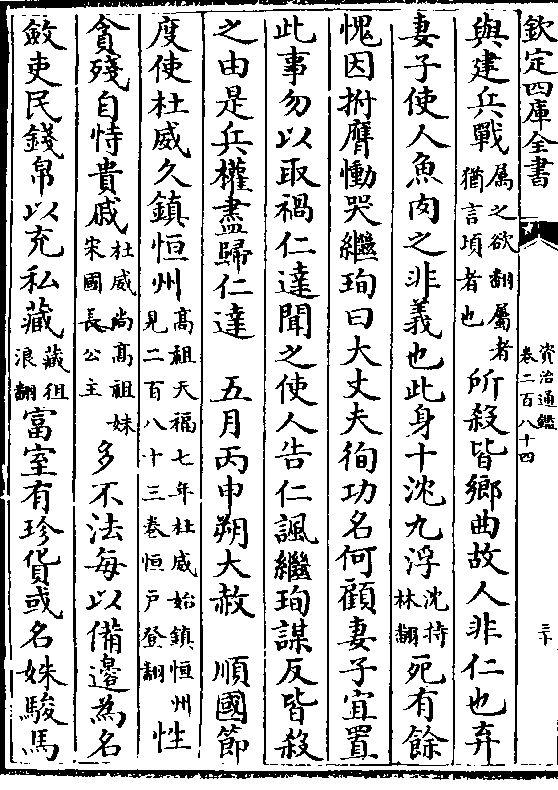 欽定四庫全書
資治通鑑
卷二百八十四
三十
與建兵戰屬之欲翻屬者猶言項者也所殺皆鄉曲故人非仁也弃
妻子使人魚肉之非義也此身十沈九浮沈持林翻死有餘
愧因拊膺慟哭繼珣曰大丈夫徇功名何顧妻子宜置
此事勿以取禍仁達聞之使人告仁諷繼珣謀反皆殺
之由是兵權盡歸仁達　五月丙申朔大赦　順國節
度使杜威久鎮恒州髙祖天福七年杜威始鎮恒州見二百八十三卷恒戸登翻性
貪殘自恃貴戚杜威尚髙祖妹宋國長公主多不法每以備邊為名
斂吏民錢帛以充私藏藏徂浪翻富室有珍貨或名姝駿馬